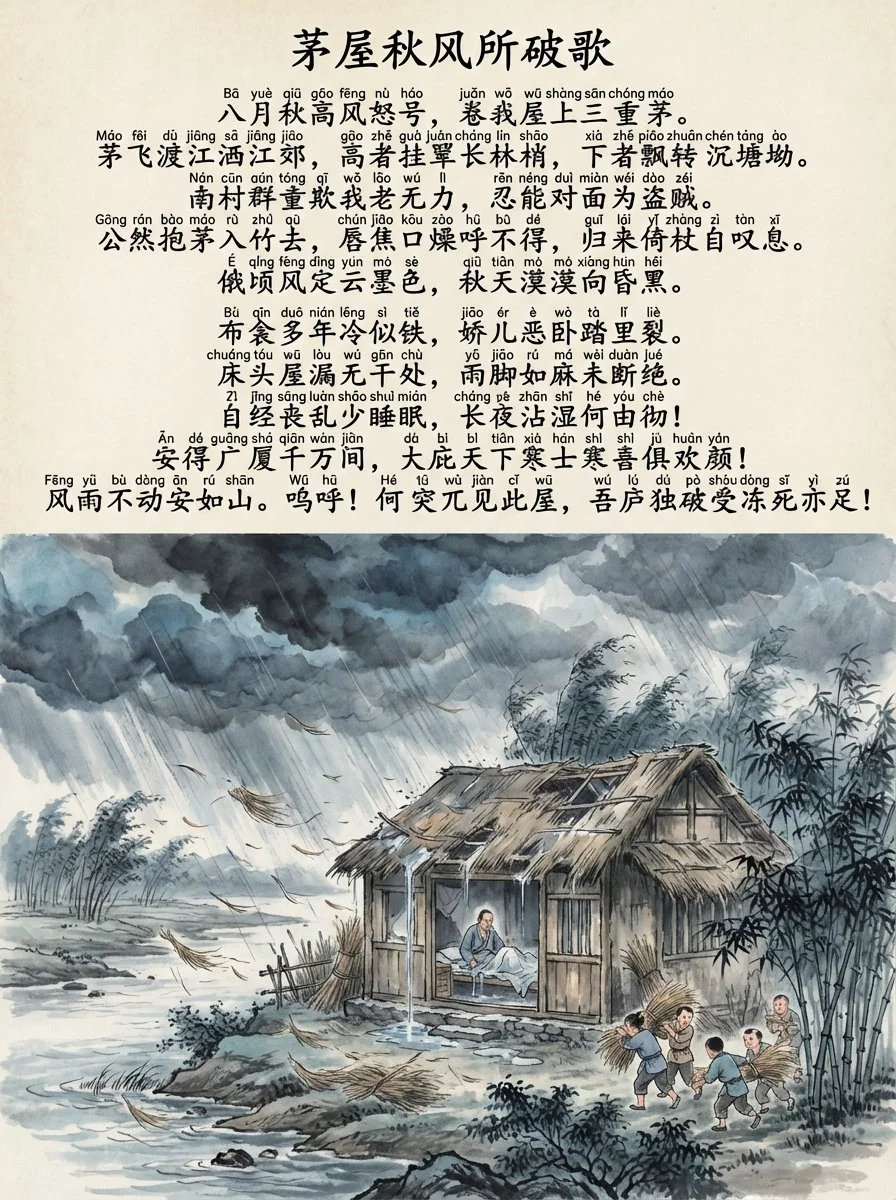 茅屋秋风所破歌
Bā yuè qiū gāo fēng nù háo juǎn wǒ wū shàng sān chóng máo
八月秋高风怒号，卷我屋上三重茅。
Máo fēi dù jiāng sǎ jiāng jiāo gāo zhě guà juàn cháng lín shāo xià zhě piāo zhuǎn chén táng ào
茅飞渡江洒江郊，高者挂罩长林梢，下者飘转沉塘坳。
Nán cūn qún tóng qī wǒ lǎo wú lì rěn néng duì miàn wéi dào zéi
南村群童欺我老无力，忍能对面为盗贼。
Gōng rán bào máo rù zhú qù chún jiāo kǒu zào hū bù dé guī lái yǐ zhàng zì tàn xī
公然抱茅入竹去，唇焦口燥呼不得，归来倚杖自叹息。
É qǐng fēng dìng yún mò sè qiū tiān mò mò xiàng hūn hēi
俄顷风定云墨色，秋天漠漠向昏黑。
Bù qīn duō nián lěng sì tiě jiāo ér è wò tà lǐ liè
布衾多年冷似铁，娇儿恶卧踏里裂。
chuáng tóu wū lòu wú gān chù yǔ jiǎo rú má wèi duàn jué
床头屋漏无干处，雨脚如麻未断绝。
Zì jīng sāng luàn shǎo shuì mián cháng yè zhān shī hé yóu chè
自经丧乱少睡眠，长夜沾湿何由彻！
Ān dé guǎng shà qiān wàn jiān dà bì bì tiān xià hán shì shì jù huān yán
安得广厦千万间，大庇天下寒士寒喜俱欢颜！
Fēng yǔ bù dòng ān rú shān Wū hū Hé wù jiàn cǐ wū wú lú dú pò shòu dòng sǐ yì zú
风雨不动安如山。呜呼！何突兀见此屋，吾庐独破受冻死亦足！